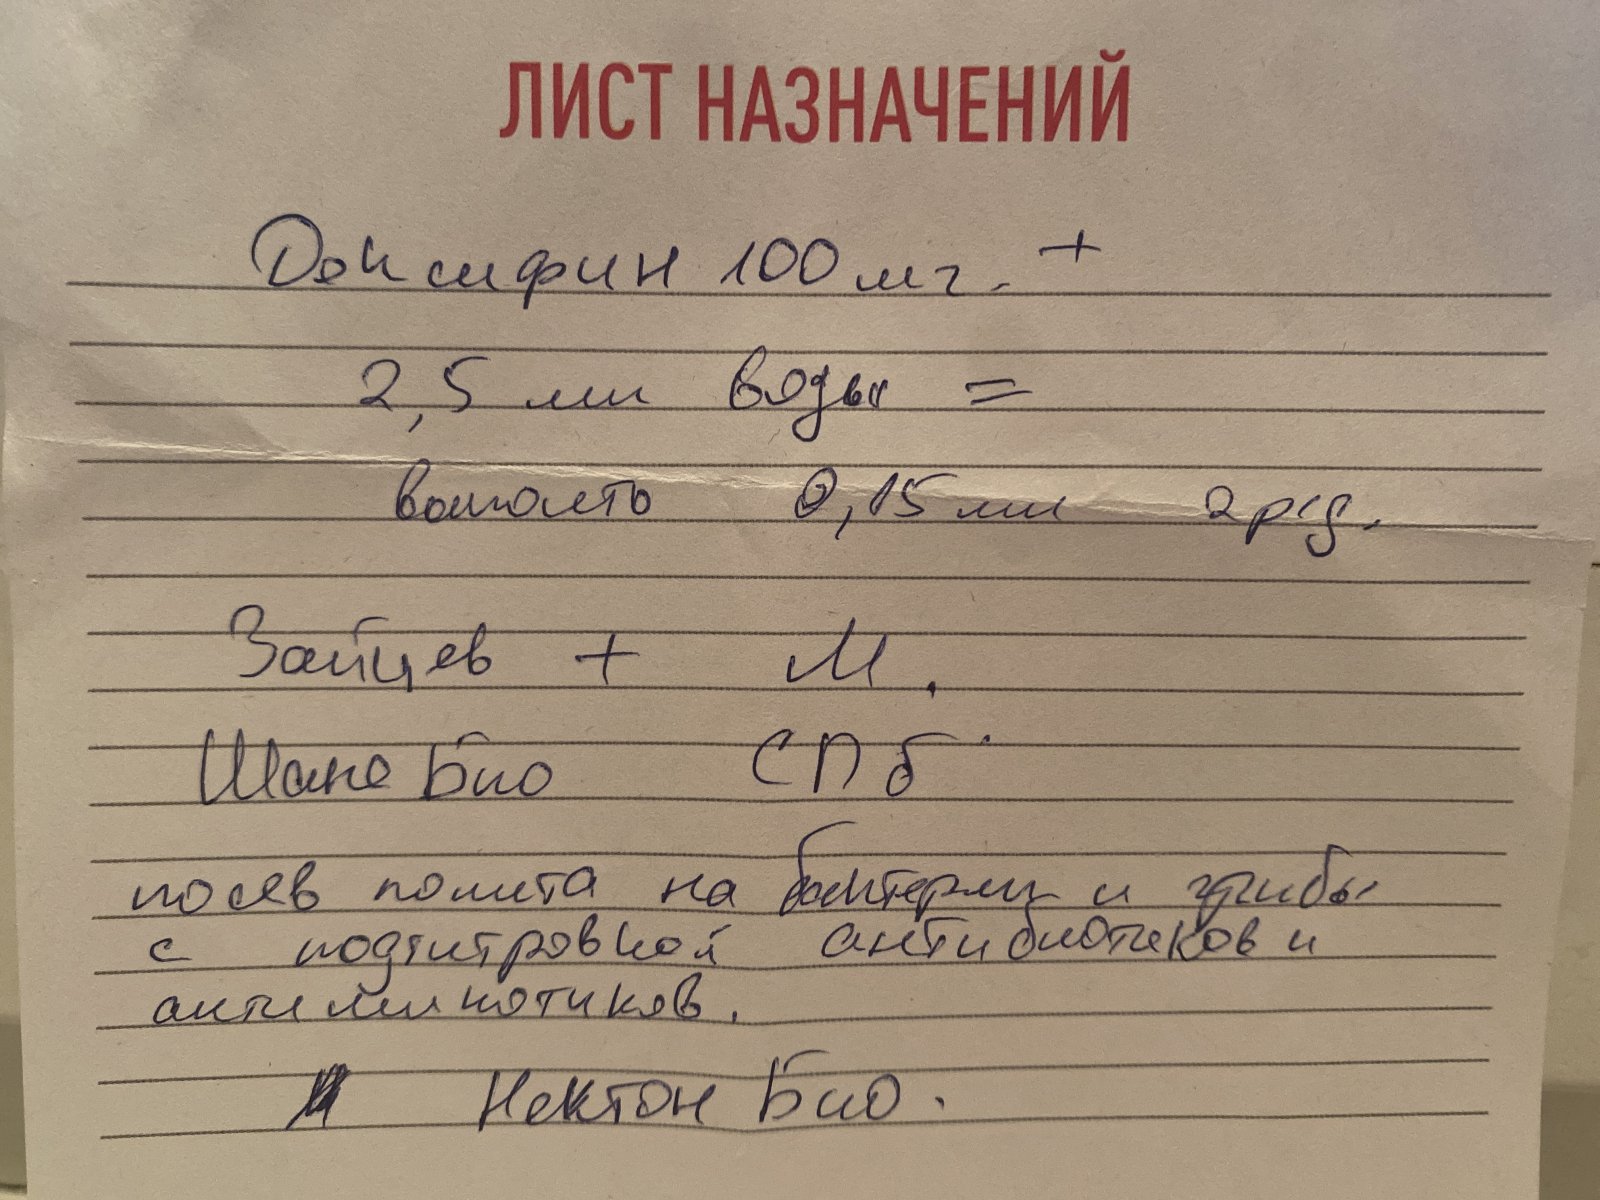 ЛИСТ НАЗНАЧЕНИЙ
Доксифин 100 мг. +
2,5 мл воды =
выпоить 0,15 мл 2 р/д.
Зайцев + М.
Шанс Био СПб
посев помёта на бактерии и грибы
с подтитровкой антибиотиков и
антимикотиков.
Нектон Био.